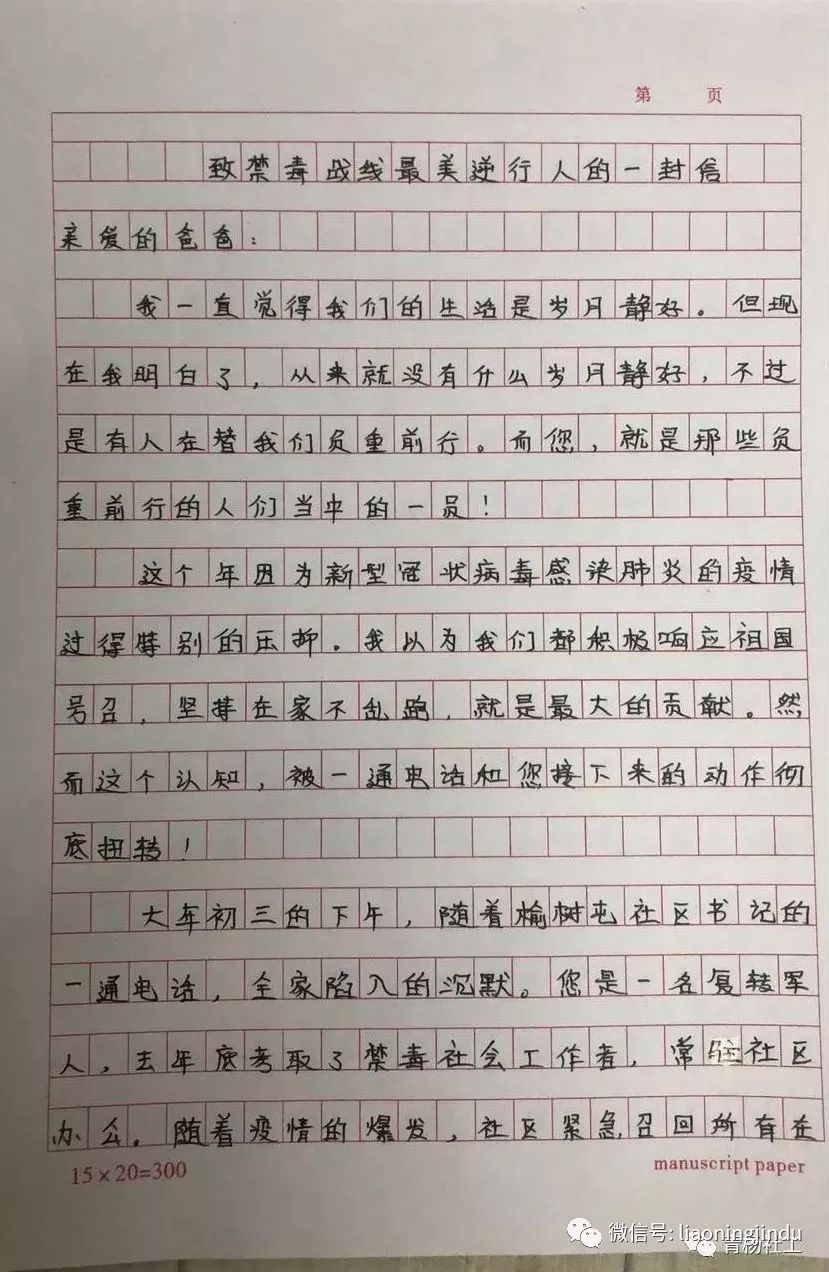 第 页
致禁毒战线最美逆行人的一封信
亲爱的爸爸：
我一直觉得我们的生活是岁月静好。但现
在我明白了，从来就没有什么岁月静好，不过
是有人在替我们负重前行。而您，就是那些负
重前行的人们当中的一员！
这个年因为新型冠状病毒感染肺炎的疫情
过得特别的压抑。我以为我们都积极响应祖国
号召，坚持在家不乱跑，就是最大的贡献。然
而这个认知，被一通电话和您接下来的动作彻
底扭转！
大年初三的下午，随着榆树屯社区书记的
一通电话，全家陷入的沉默。您是一名复转军
人，去年底考取了禁毒社会工作者，常驻社区
办公。随着疫情的爆发，社区紧急召回所有在
15×20=300
manuscript paper
微信号: liaoningjindu
青杨社工